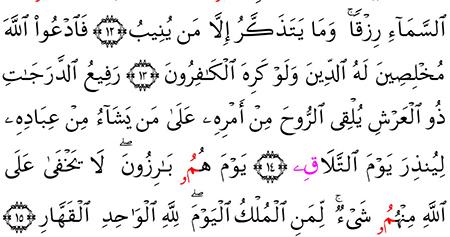 السَّمَآءِ رِزْقٗاۚ وَمَا يَتَذَكَّرُ إِلَّا مَن يُنِيبُ ١٢ فَادْعُواْ اللَّهَ
مُخْلِصِينَ لَهُ الدِّينَ وَلَوْ كَرِهَ الْكَٰفِرُونَ ١٣ رَفِيعُ الدَّرَجَٰتِ
ذُو الْعَرْشِ يُلْقِي الرُّوحَ مِنْ أَمْرِهِۦ عَلَىٰ مَن يَشَآءُ مِنْ عِبَادِهِۦ
لِيُنذِرَ يَوْمَ التَّلَاقِۦ ١٤ يَوْمَ هُمُۥ بَٰرِزُونَۖ لَا يَخْفَىٰ عَلَى
اللَّهِ مِنْهُمُۥ شَيْءٞۚ لِّمَنِ الْمُلْكُ الْيَوْمَۖ لِلَّهِ الْوَٰحِدِ الْقَهَّارِ ١٥